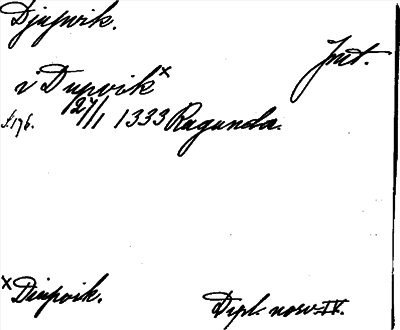 Djupvik.
Jmt.
i Dupvik x
27/1 1333 Ragunda.
s. 176.
x Diupvik. Dipl. norv. IV.